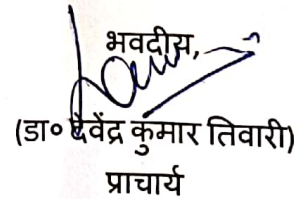 भवदीय,
(डा० देवेंद्र कुमार तिवारी)
प्राचार्य